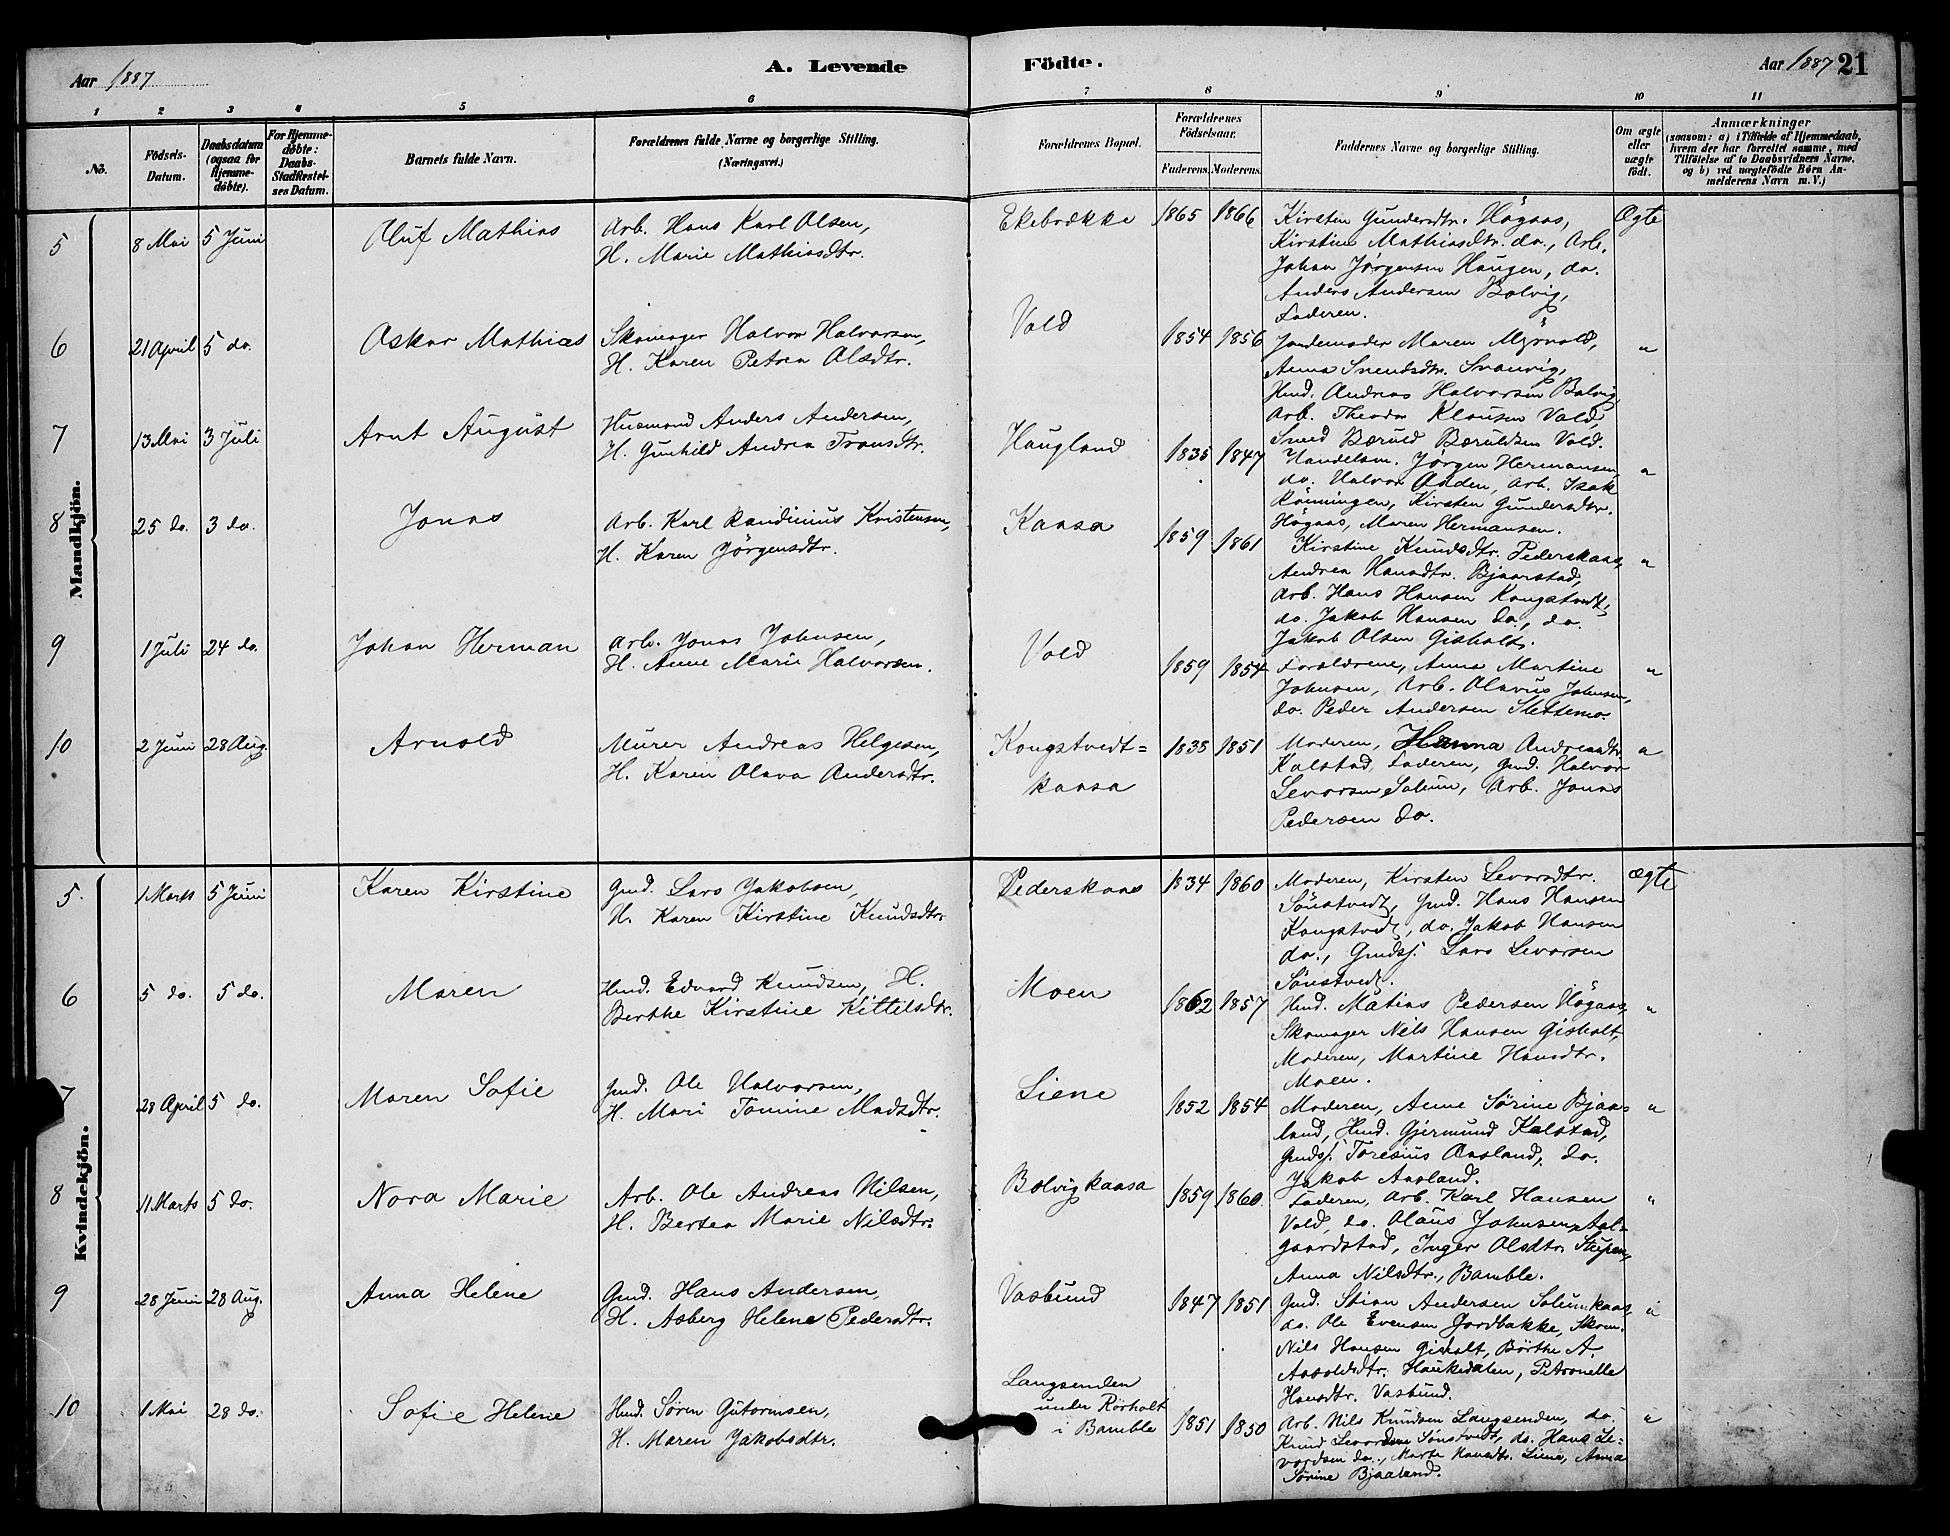 Aar 1887
A. Levende
Födte.
Aar 1887 21
1 2 3 4 5 6 7 8 9 10 11
No.
Födsels-Datum.
Daabsdatum (ogsaa for Hjemme-döbte).
For Hjemme-döbte: Daabs-Stadfæstel-ses Datum.
Barnets fulde Navn.
Forældrenes fulde Navne og borgerlige Stilling. (Næringsvei.)
Forældrenes Bopæl.
Forældrenes Födselsaar.
Faderens. Moderens.
Faddernes Navne og borgerlige Stilling.
Om ægte eller uægte födt.
Anmærkninger
(saasom: a) i Tilfælde af Hjemmedaab,
hvem der har forrettet samme, med
Tilföielse af to Daabsvidners Navne,
og b) ved uægtefödte Börn An-
melderens Navn m. V.)
Mandkjön.
5 8 Mai 5 Juni Oluf Mathias
Arb. Hans Karl Olsen,
H. Marie Mathiasdtr.
Ekebrække 1865 1866
Kirsten Gundersdtr. Högaas,
Kirstine Mathiasdtr. do., Arb.
Johan Jörgensen Haugen, do.
Anders Andersen Bolvig,
Faderen.
Ægte
6 21 April 5 do. Oskar Mathias
Skomager Halvor Halvorsen,
H. Karen Petrea Olsdtr.
Vold 1854 1856
Jordemoder Maren Myrvold,
Anna Svendsdtr. Svanvig,
Hmd. Andreas Halvorsen Bolvig,
Arb. Theodor Klausen Vold,
Smed Bæruld Bæruldsen Vold.
"
7 13 Mai 3 Juli Arnt August
Husmand Anders Andersen,
H. Gunhild Andrea Transdtr.
Haugland 1835 1847
Handelsm. Jørgen Hermansen,
do. Halvor Anden, Arb. Isak
Rönningen, Kirsten Gundersdtr.
Högaas, Maren Hermansen.
"
8 25 do. 3 do. Jonas
Arb. Karl Kandinius Kristensen,
H. Karen Jörgensdtr.
Kaasa 1859 1861
Kirstine Knudsdtr. Pederskaas,
Andrea Hansdtr. Bjaarstad,
Arb. Hans Hansen Kongstvedt,
do. Jakob Hansen do., do.
Jakob Olsen Gisholt.
"
9 1 Juli 24 do. Johan Herman
Arb. Jonas Johnsen,
H. Anne Marie Halvorsen.
Vold 1859 1854
Forældrene, Anna Martine
Johnsen, Arb. Olavus Johnsen,
do. Peder Andersen Slettemo.
"
10 2 Juni 28 Aug. Arnold
Murer Andreas Helgesen,
H. Karen Olava Andersdtr.
Kongstvedt=
kaasa
1835 1851
Moderen, Hanna Andreasdtr.
Kalstad, Faderen, Gmd. Halvor
Levorsen Solum, Arb. Jonas
Pedersen do.
"
Kvindekjön.
5. 1 Marts 5 Juni Karen Kirstine
Gmd. Lars Jakobsen,
H. Karen Kirstine Knudsdtr.
Pederskaas 1834 1860
Moderen, Kirsten Levorsdtr.
Sönstvedt, Gmd. Hans Hansen
Kongstvedt, do. Jakob Hansen
do., Gmdsj. Lars Levorsen
Sönstvedt.
ægte
6 5 do. 5 do. Maren
Hmd. Edvard Knudsen, H.
Berthe Kirstine Kittelsdtr.
Moen 1862 1857
Hmd. Matias Pedersen Högaas,
Skomager Nils Hansen Gisholt,
Moderen, Martine Hansdtr.
Moen.
"
7 28 April 5 do. Maren Sofie
Gmd. Ole Halvorsen,
H. Mari Tomine Madsdtr.
Liene 1852 1854
Moderen, Anne Sörine Bjaa-
land, Hmd. Gjermund Kalstad,
Gmdsj. Toresius Aasland, do.
Jakob Aasland.
"
8 11 Marts 5 do. Nora Marie
Arb. Ole Andreas Nilsen,
H. Bertea Marie Nilsdtr.
Bolvigkaasa 1859 1860.
Faderen, Arb. Karl Hansen
Vold, do. Olaus Johnsen Aal=
gaardstad, Inger Olsdtr. Stupen,
Anna Nilsdtr., Bamble.
"
9 28 Juni 28 Aug. Anna Helene
Gmd. Hans Andersen,
H. Asberg Helene Pedersdtr.
Vasbund 1847 1851
Gmd. Stian Andersen Solumkaas,
do. Ole Evensen Jordbakke, Skom.
Nils Hansen Gisholt, Börthe A.
Aasoldsdtr. Haukedalen, Petronelle
Hansdtr. Vasbund.
"
10 1 Mai 28 do. Sofie Helene
Hmd. Sören Gutormsen,
H. Maren Jakobsdtr.
Langsenden
under Rörholt
i Bamble
1851 1850
Arb. Nils Knudsen Langsenden, do.
Knud Levordsen Sönstvedt, do. Hans Le=
vordsen do., Marte Hansdtr. Liene, Anna
Sörine Bjaaland.
"